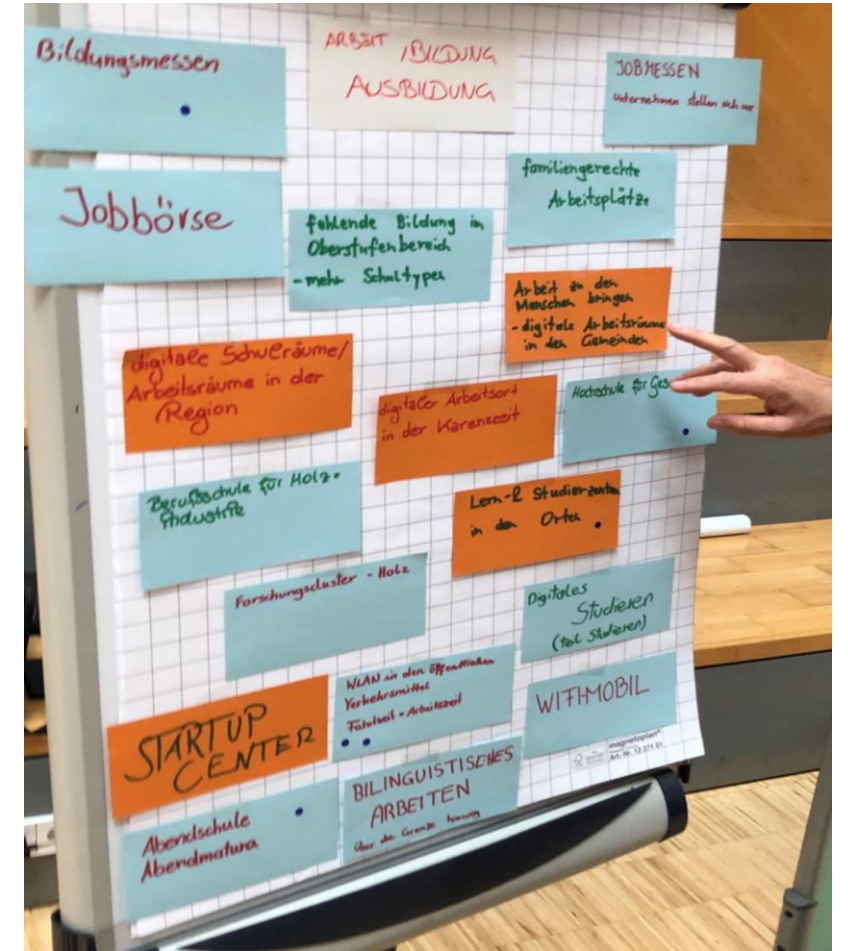 Bildungsmessen
ARBEIT /BILDUNG
AUSBILDUNG
JOBMESSEN
Unternehmen stellen sich vor
Jobbörse
fehlende Bildung in
Oberstufenbereich
- mehr Schultypen
familiengerechte
Arbeitsplätze
Arbeit zu den
Menschen bringen
- digitale Arbeitsräume
in den Gemeinden
digitale Schulräume/
Arbeitsräume in der
Region
digitaler Arbeitsort
in der Karenzzeit
Hochschule für Ges
Berufsschule für Holz=
industrie
Lern- & Studierzentren
in den Orten
Forschungscluster - Holz
Digitales
Studieren
(teil Studieren)
STARTUP
CENTER
WLAN in den öffentlichen
Verkehrsmittel
Fahrzeit = Arbeitszeit
WIFI-MOBIL
magnetoplan®
Art.-Nr. 12 271 01
Abendschule
Abendmatura
BILINGUISTISCHES
ARBEITEN
über die Grenze hinweg